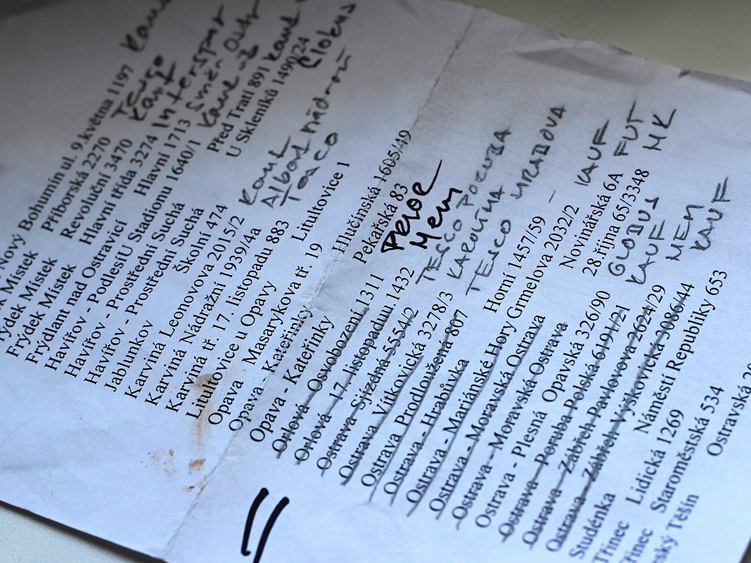 Nový Bohumín ul. 9.května 1197 Kauf
Místek Příborská 2270 Tesco
rýdek Místek Revoluční 3470 Kauf
Frýdek Místek Hlavní třída 3274 Interspar
Frýdlant nad Ostravicí Hlavní 1713 Směr Ostr
Havířov - PodlesíU Stadionu 1640/1 Kauf
Havířov - Prostřední Suchá Před Tratí 891 Kauf
Havířov - Prostřední Suchá U Skleníků 1490/24 Globus
Jablunkov Školní 474
Karviná Leonovova 2015/2 Kauf
Karviná Nádražní 1939/4a Albert nádraží
Karviná tř. 17. listopadu 883 Tesco
Litultovice u Opavy Litultovice 1
Opava - Masarykova tř. 19
Opava - Kateřinky Hlučínská 1605/49
Opava - Kateřinky Pekařská 83
Orlová - Osvobození 1311 PRIOR
Orlová - 17. listopaduu 1432 Mem
Ostrava - Sjízdná 5554/2 TESCO PORUBA
Ostrava Vítkovická 3278/3 KAROLINA
Ostrava Prodloužená 807 TESCO HRABOVA
Ostrava - Hrabůvka Horní 1457/59 –
Ostrava - Mariánské Hory Grmelova 2032/2 KAUF
Ostrava - Moravská Ostrava Novinářská 6A FUT
Ostrava - Moravská Ostrava 28 října 65/3348 MK
Ostrava - Plesná Opavská 326/90 GLOBUS
Ostrava - Poruba Polská 6191/21 KAUF
Ostrava - Zábřeh Pavlovova 2624/29 MEM
Ostrava - Zábřeh Výškovická 3086/44 KAUF
Studénka Náměstí Republiky 653
Třinec Lidická 1269
Třinec Staroměstská 534
eský Těšín Ostravská 20